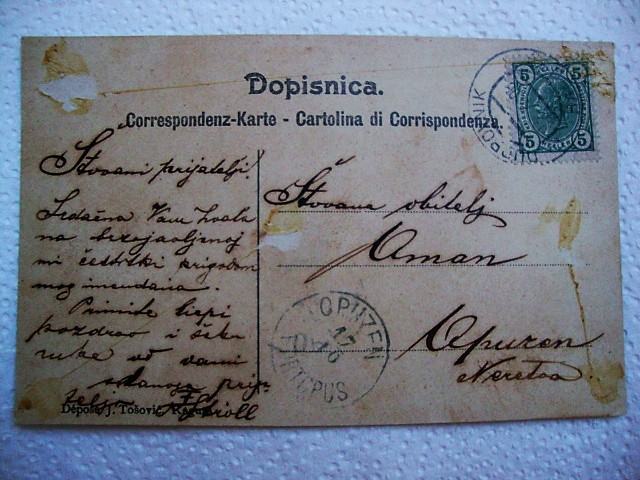 Dopisnica.
Correspondenz-Karte - Cartolina di Corrispondenza.
5 5
5 5
DUBROVNIK
Štovani prijatelji!
Srdačna Vam hvala
na
mi čestitki prigodom
mog imendana.
Primite liepi
pozdrav i
ruke od vami
prija-
telja
Štovana obitelj
Oman
Opuzen
Neretva
OPUZEN
FORT OPUS
Dépose J. Tošović,